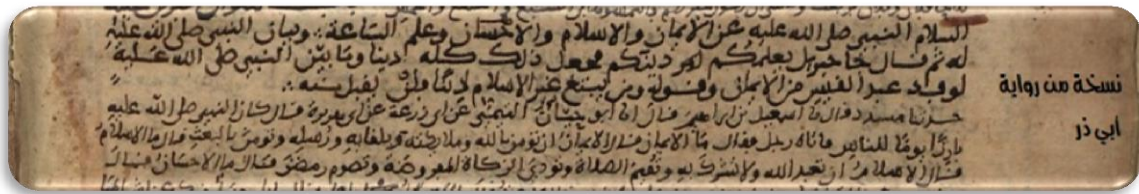 السلام النبي صلى الله عليه عن الايمان والاسلام والاحسان وعلم الساعة وبيان النبي صلى الله عليه
له ثم قال جا جبريل يعلمكم دينكم فجعل ذلك كله دينا وما بين النبي صلى الله عليه
لوفد عبد القيس من الايمان وقوله ومن يبتغ غير الاسلام دينا فلن يقبل منه
حدثنا مسدد قال نا اسمعيل بن ابراهيم قال انا ابو حيان التيمي عن ابي زرعة عن ابي هريرة قال كان النبي صلى الله عليه
بارزا يوما للناس فاتاه رجل فقال ما الايمان قال الايمان ان تومن بالله وملايكته وبلقايه ورسله وتومن بالبعث قال ما الاسلام
قال الاسلام ان تعبد الله ولا تشرك به وتقيم الصلاة وتودي الزكاة المفروضة وتصوم رمضن قال ما الاحسان قال
نسخة من رواية
أبي ذر